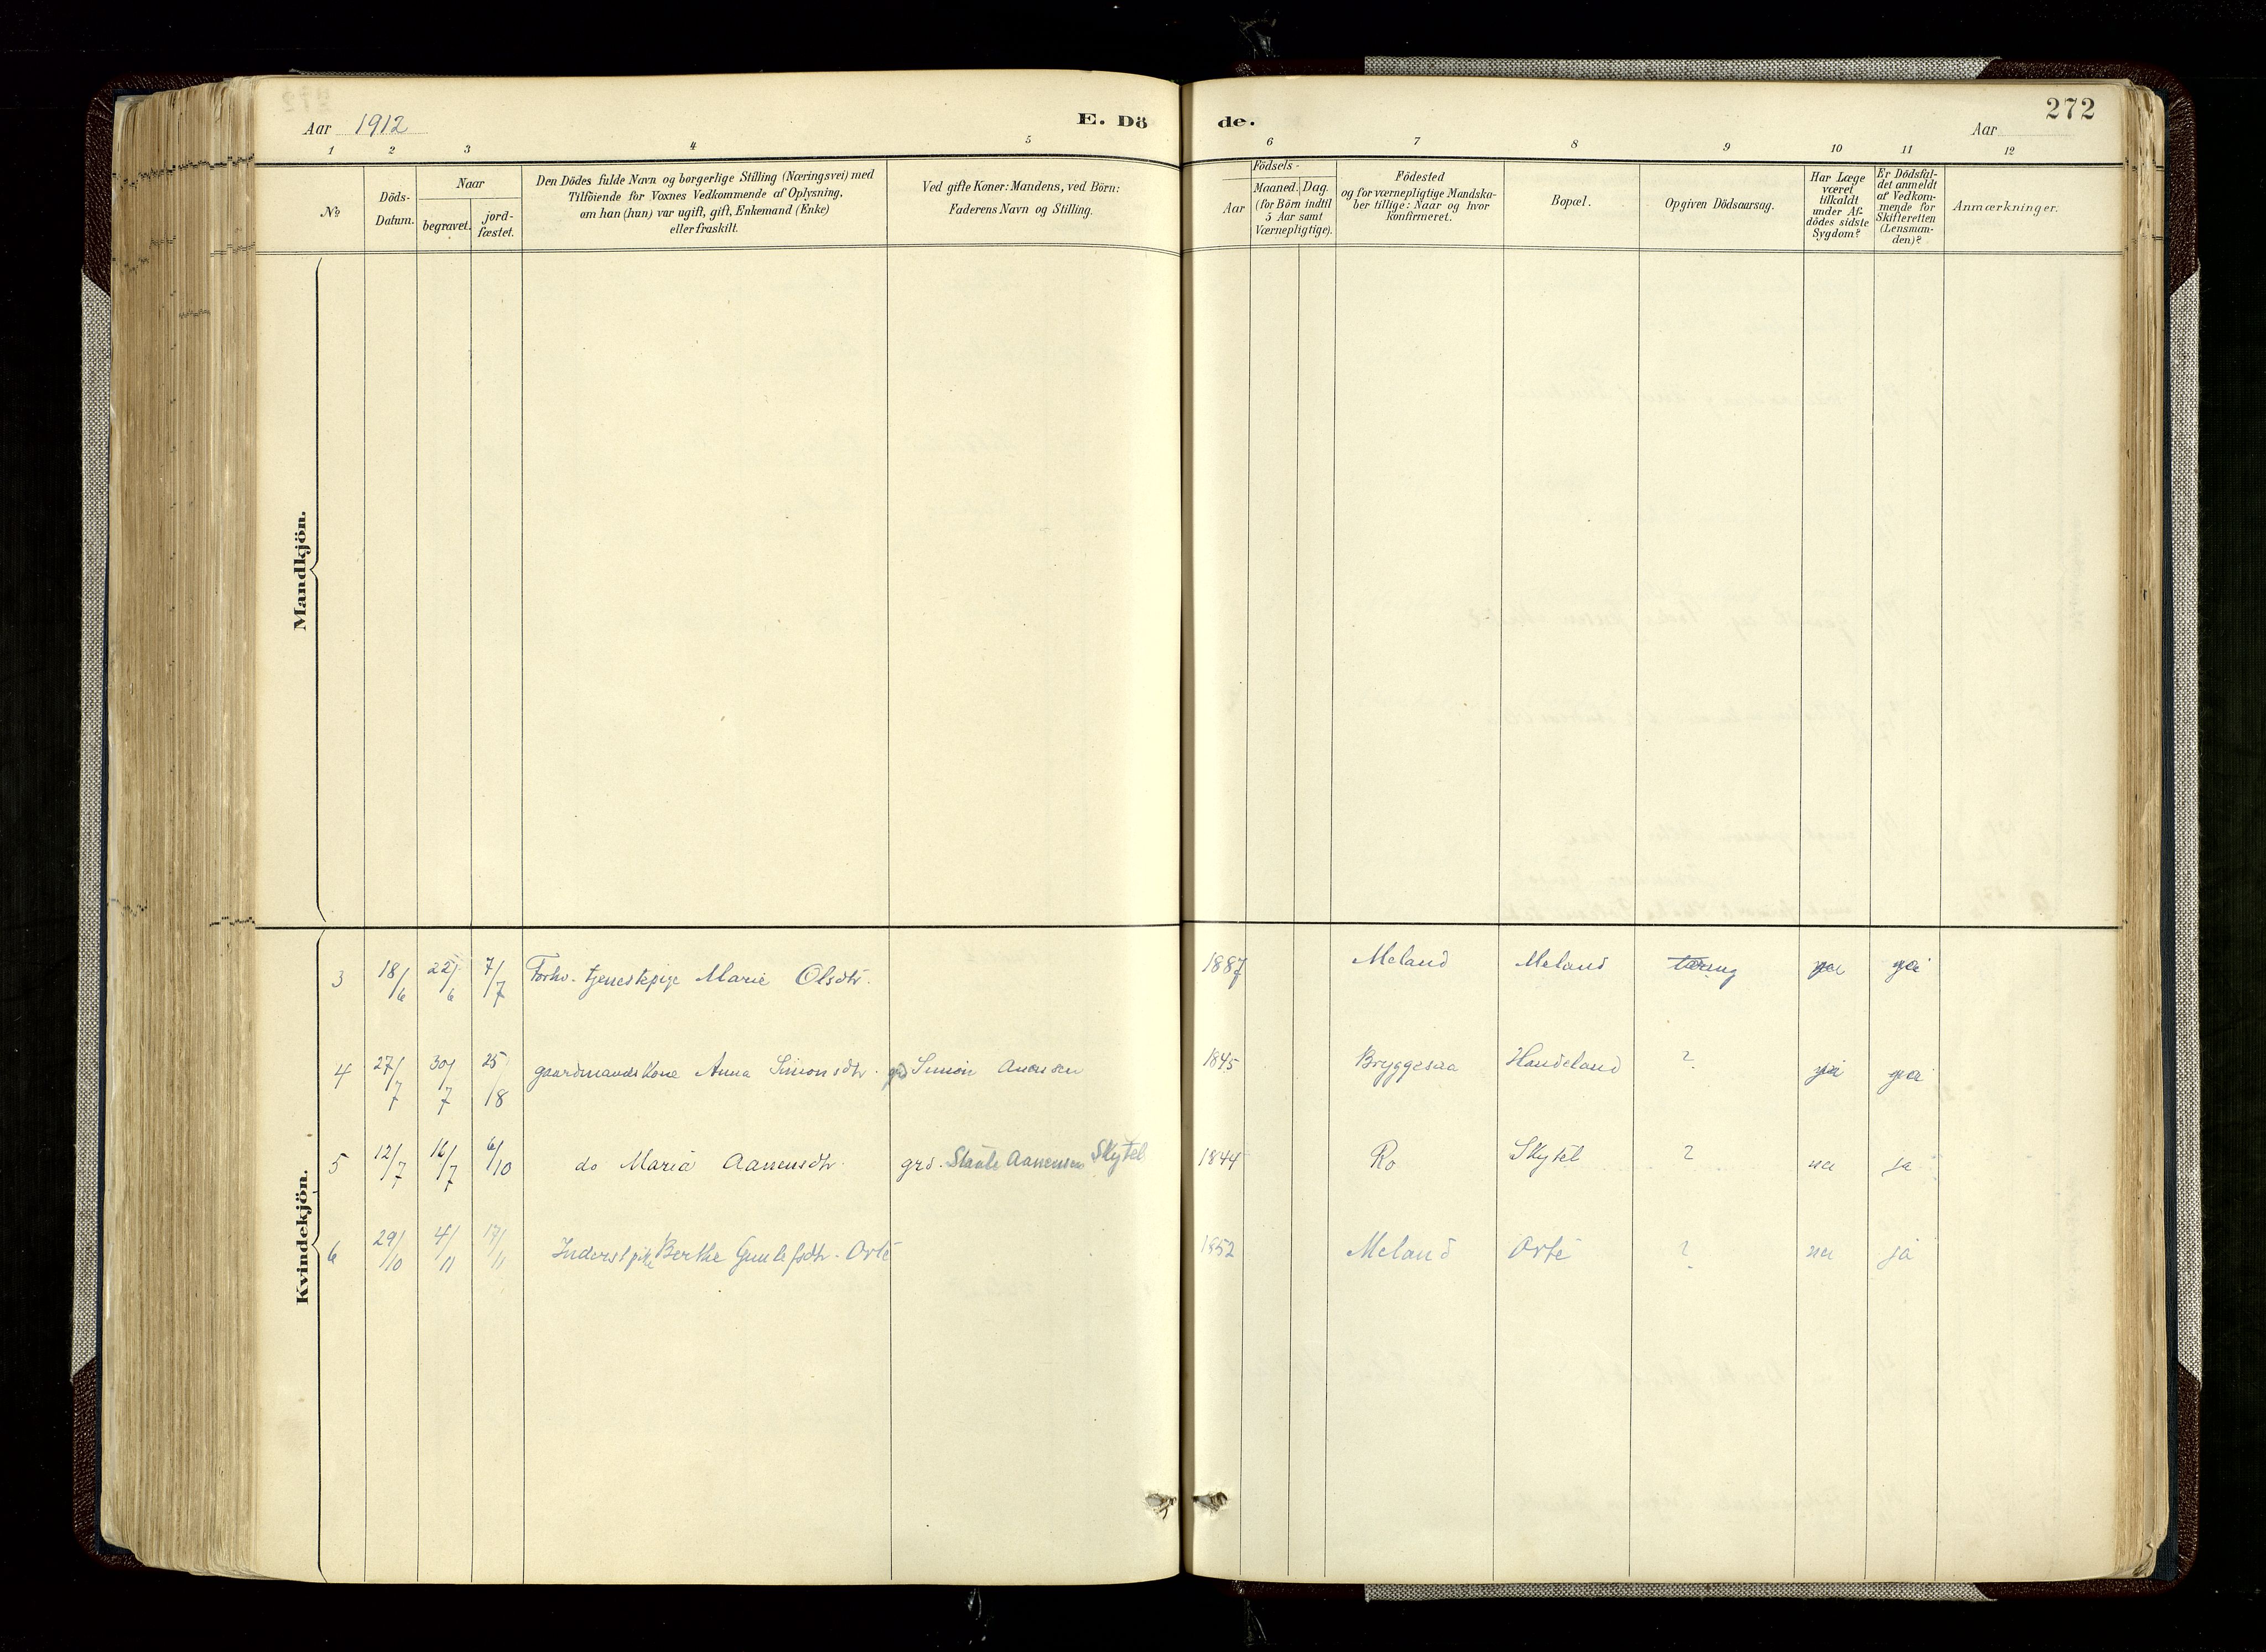 272
Aar 1912
E. Dö
de.
Aar
1 2 3 4 5 6 7 8 9 10 11 12
No
Döds-
Datum.
Naar
begravet.
jord-
fæstet.
Den Dödes fulde Navn og borgerlige Stilling (Næringsvei) med
Tilföiende for Voxnes Vedkommende af Oplysning,
om han (hun) var ugift, gift, Enkemand (Enke)
eller fraskilt.
Ved gifte Koner: Mandens, ved Börn:
Faderens Navn og Stilling.
Födsels-
Aar
Maaned. Dag.
(for Börn indtil
5 Aar samt
Værnepligtige).
Födested
og for værnepligtige Mandska-
ber tillige: Naar og hvor
konfirmeret.
Bopæl.
Opgiven Dödsaarsag.
Har Læge
været
tilkaldt
under Af-
dödes sidste
Sygdom?
Er Dödsfal-
det anmeldt
af Vedkom-
mende for
Skifteretten
(Lensman-
den)?
Anmærkninger.
Mandkjön.
Kvindekjön.
3 18/6 22/6 7/7 Forhv. tjenestepige Marie Olsdtr. 1887 Meland Meland tæring ja ja
4 27/7 30/7 25/18 gaardmandskone Anna Simonsdtr. grd Simon 1845 Bryggesaa Handeland ? ja ja
5 12/7 16/7 6/10 do Maria Aanensdtr. grd. Staale Aanensen Skytel 1844 Ro Skytel ? nei ja
6 29/10 4/11 17/11 Inderst pike Berthe Gunlefsdtr. Orte 1852 Meland Orte ? nei ja